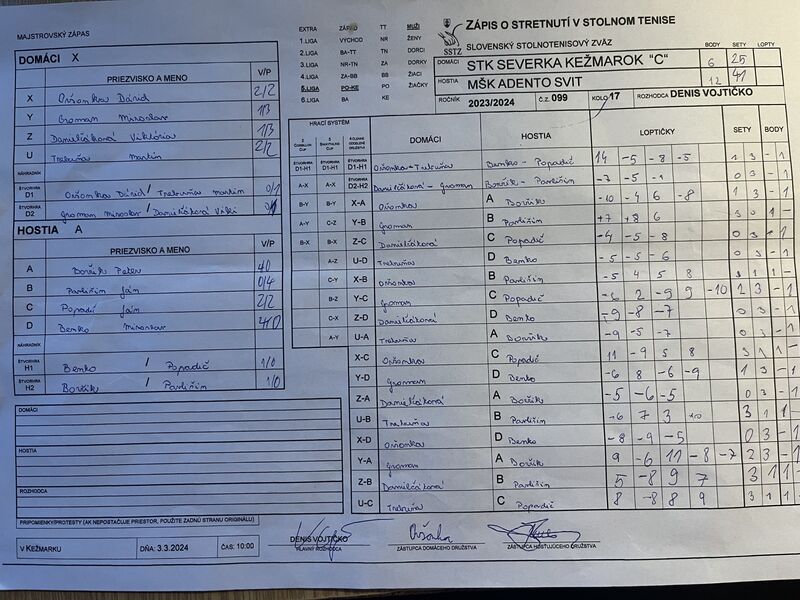 MAJSTROVSKÝ ZÁPAS
DOMÁCI X
PRIEZVISKO A MENO V/P
X Oršonka Dávid 2/2
Y Groman Miroslav 1/3
Z Danielčáková Viktória 1/3
U Trebuňa Martin 2/2
NÁHRADNÍK
ŠTVORHRA D1 Oršonka Dávid / Trebuňa Martin 0/1
ŠTVORHRA D2 Groman Miroslav / Danielčáková Viki
HOSTIA A
PRIEZVISKO A MENO V/P
A Boršík Peter 4/0
B Pavlišin Ján 0/4
C Popadič Ján 2/2
D Benko Miroslav
NÁHRADNÍK
ŠTVORHRA H1 Benko / Popadič 1/0
ŠTVORHRA H2 Boršík / Pavlišin 1/0
DOMÁCI
HOSTIA
ROZHODCA
PRIPOMIENKY/PROTESTY (AK NEPOSTAČUJE PRIESTOR, POUŽITE ZADNÚ STRANU ORIGINÁLU)
V KEŽMARKU DŇA: 3.3.2024 ČAS: 10:00
EXTRA ZÁPAD TT MUŽI
1.LIGA VÝCHOD NR ŽENY
2.LIGA BA-TT TN DORCI
3.LIGA NR-TN ZA DORKY
4.LIGA ZA-BB BB ŽIACI
5.LIGA PO-KE PO ŽIAČKY
6.LIGA BA KE
SSTZ
ZÁPIS O STRETNUTÍ V STOLNOM TENISE
SLOVENSKÝ STOLNOTENISOVÝ ZVÄZ BODY SETY LOPTY
DOMÁCI STK SEVERKA KEŽMAROK "C" 6 25
HOSTIA MŠK ADENTO SVIT 12 41
ROČNÍK 2023/2024 Č.Z. 099 KOLO 17 ROZHODCA DENIS VOJTIČKO
HRACÍ SYSTÉM
DOMÁCI HOSTIA LOPTIČKY SETY BODY
ŠTVORHRA D1-H1 ŠTVORHRA D1-H1 ŠTVORHRA D1-H1 Oršonka - Trebuňa Benko - Popadič 14 -5 -8 -5 1 3 - 1
A-X A-X ŠTVORHRA D2-H2 Danielčáková - Groman Boršík - Pavlišin -7 -5 -1 0 3 - 1
B-Y B-Y X-A Oršonka A Boršík -10 -4 6 -8 1 3 - 1
A-Y C-Z Y-B Groman B Pavlišin +7 +8 6 3 0 1 -
B-X B-X Z-C Danielčáková C Popadič -4 -5 -8 0 3 - 1
A-Z U-D Trebuňa D Benko -5 -5 -6 0 3 - 1
C-Y X-B Oršonka B Pavlišin -5 4 5 8 3 1 1 -
B-Z Y-C Groman C Popadič -6 2 -9 9 -10 2 3 - 1
C-X Z-D Danielčáková D Benko -9 -8 -7 0 3 - 1
A-Y U-A Trebuňa A Boršík -9 -5 -7 0 3 - 1
X-C Oršonka C Popadič 11 -9 5 8 3 1 1 -
Y-D Groman D Benko -6 8 -6 -9 1 3 - 1
Z-A Danielčáková A Boršík -5 -6 -5 0 3 - 1
U-B Trebuňa B Pavlišin -6 7 3 10 3 1 1
X-D Oršonka D Benko -8 -9 -5 0 3 - 1
Y-A Groman A Boršík 9 -6 11 -8 -7 2 3 - 1
Z-B Danielčáková B Pavlišin 5 -8 9 7 3 1 1 -
U-C Trebuňa C Popadič 8 -8 8 9 3 1 1
DENIS VOJTIČKO
HLAVNÝ ROZHODCA
ZÁSTUPCA DOMÁCEHO DRUŽSTVA
ZÁSTUPCA HOSŤUJÚCEHO DRUŽSTVA